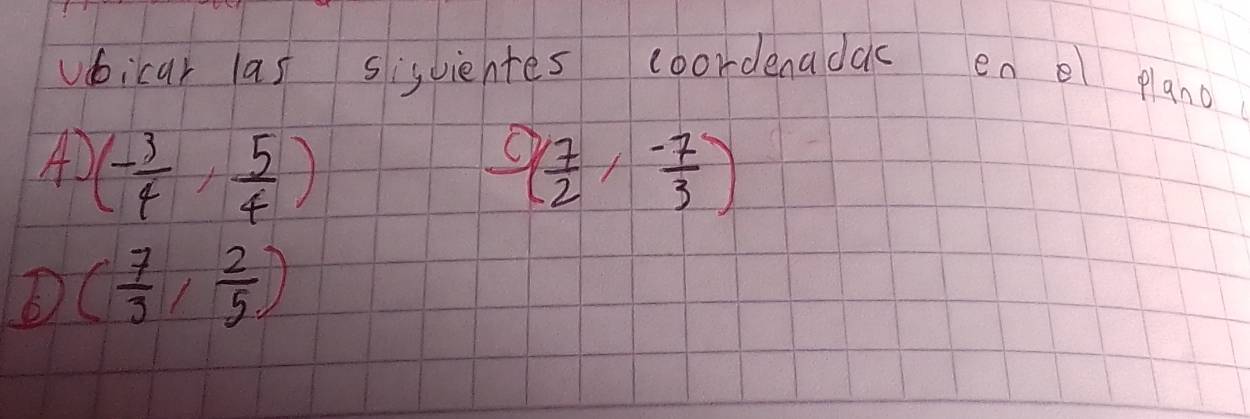 Ubicar las siguientes coordenadas en el plano
A) (-3/4, 5/4) C) (7/2, -7/3)
B) (7/3, 2/5)